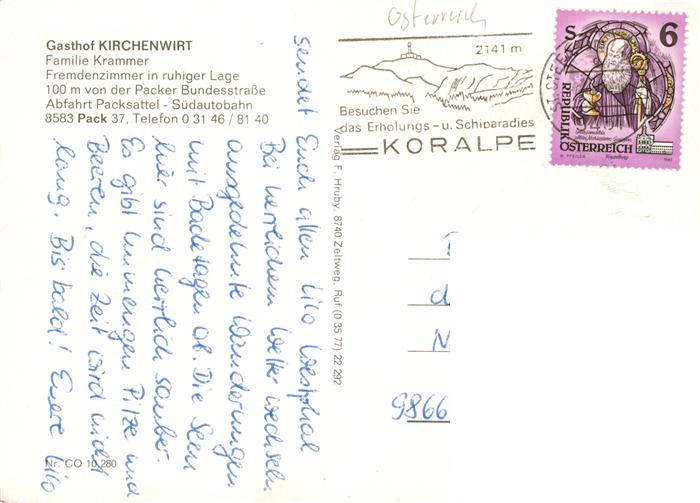 Gasthof KIRCHENWIRT
Familie Krammer
Fremdenzimmer in ruhiger Lage
100 m von der Packer Bundesstraße
Abfahrt Packsattel - Südautobahn
8583 Pack 37, Telefon 0 31 46 / 81 40
Österreich
2141 m
Besuchen Sie
das Erholungs- u. Schiparadies
KORALPE
S 6
REPUBLIK
ÖSTERREICH
1993
Verlag F. Hruby, 8740 Zeltweg, Ruf (0 35 77) 22 292
sendet Euch allen Lilo Westphal
Bei herrlichem Wetter wechseln
ausgedehnte Wanderungen
mit Badetagen ab. Die Seen
hier sind herrlich sauber.
Es gibt Unmengen Pilze und
Beeren, die Zeit wird nicht
lang. Bis bald! Euere Lilo
d
N
9866
Nr. CO 10 280